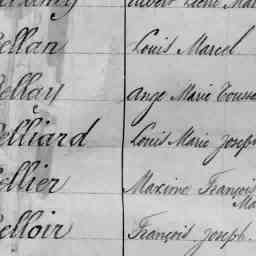 ellan Louis Marcel
ellay Ange Marie Touss
elliard Louis Marie Joseph
ellier Maxime François
Ma
elloir François Joseph